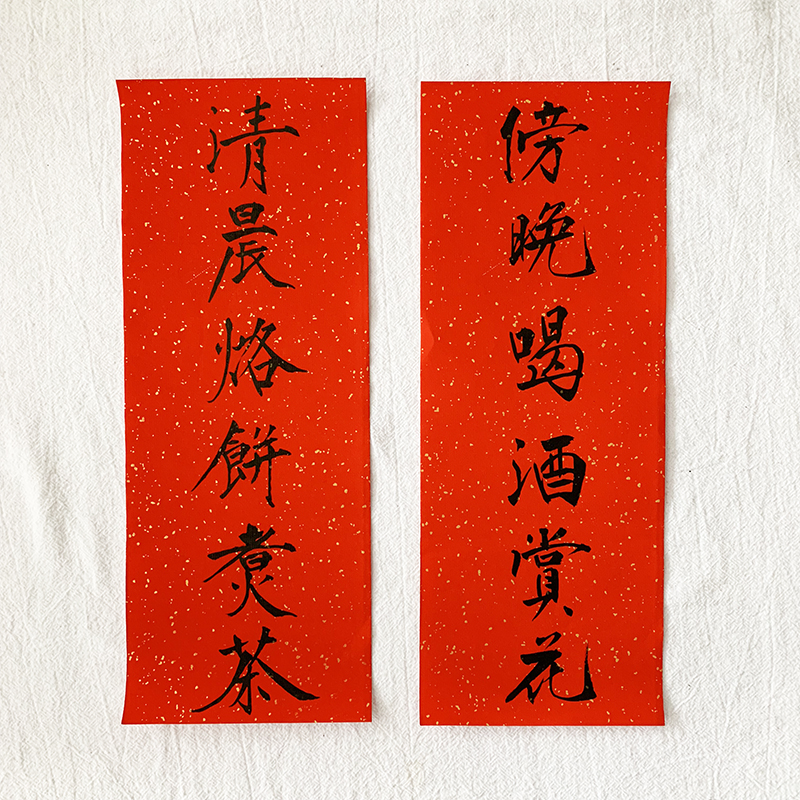 清晨烙餅煑茶
傍晚喝酒賞花